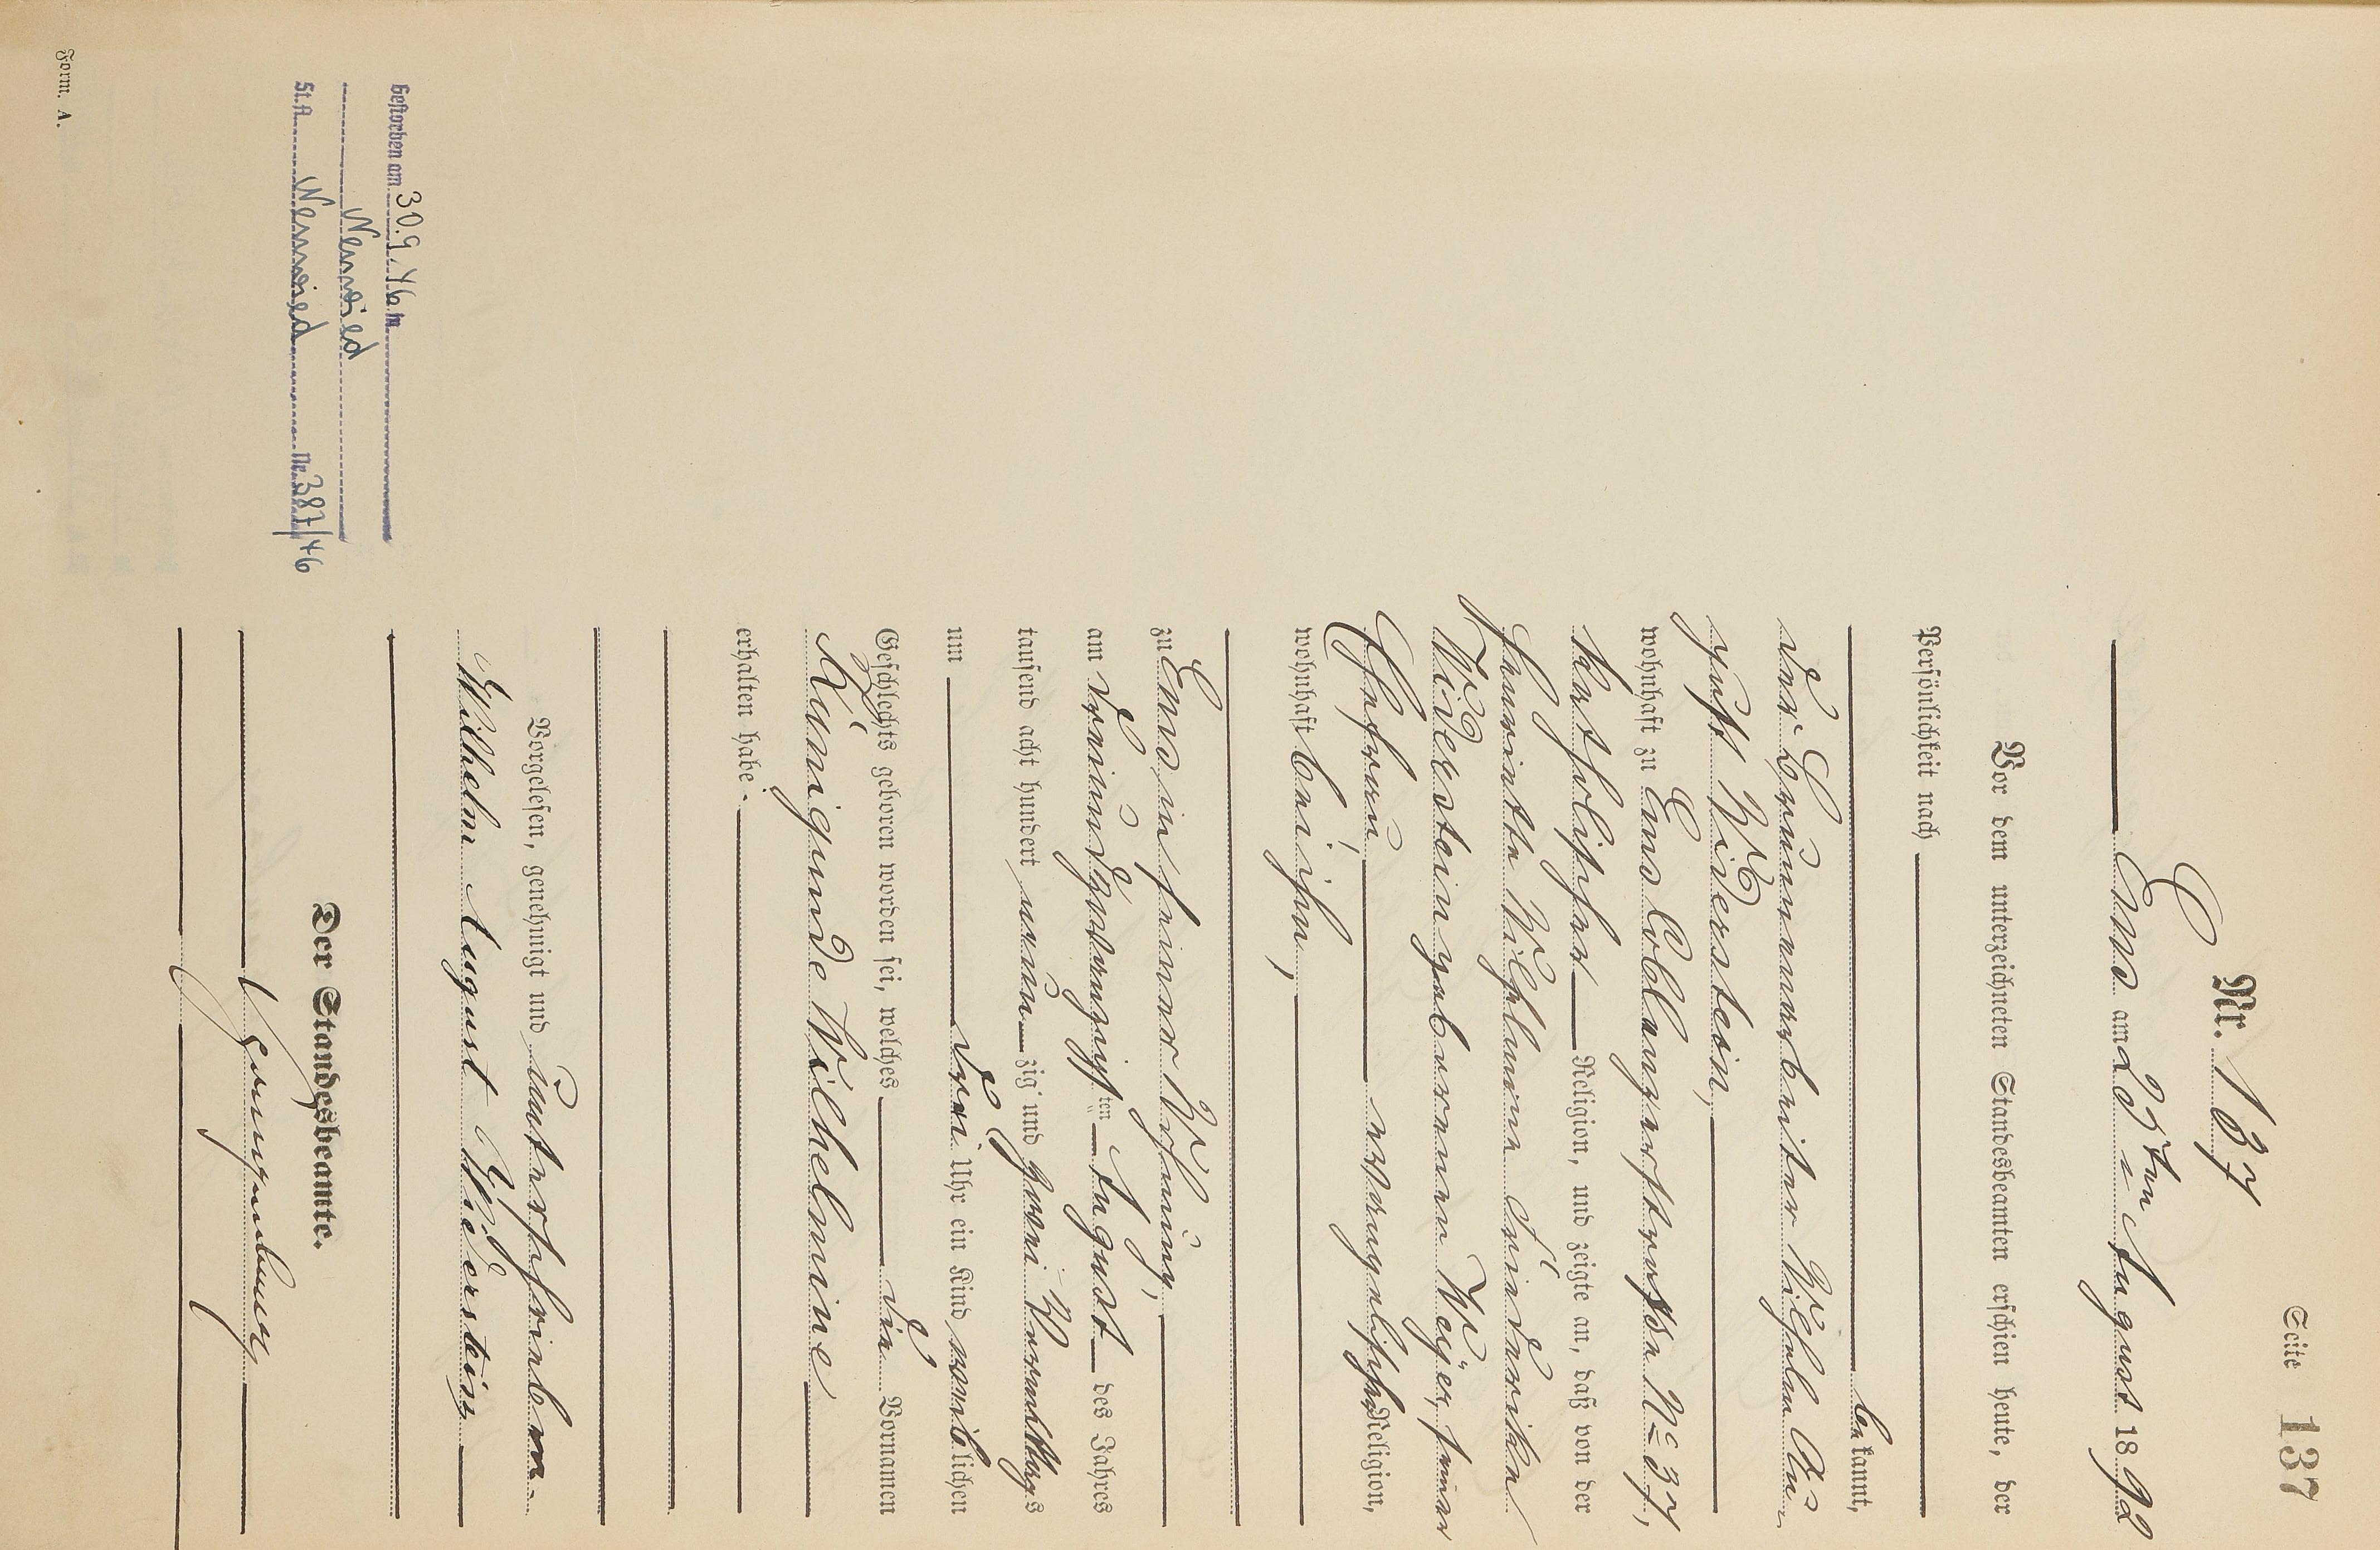 Seite 137
Nr. 137
Ems am 25ten August 1892
Vor dem unterzeichneten Standesbeamten erschien heute, der
Persönlichkeit nach
bekannt,
der Grubenarbeiter Wilhelm Au-
gust Widerstein,
wohnhaft zu Ems Coblenzerstrasse No 37,
katholischer Religion, und zeigte an, daß von der
Henriette Wilhelmine Friederike
Widerstein geborenen Weyer, seiner
Ehefrau, evangelischer Religion,
wohnhaft bei ihm,
zu Ems in seiner Wohnung,
am dreiundzwanzigsten August des Jahres
tausend acht hundert neunzig und zwei Vormittags
um drei Uhr ein Kind weiblichen
Geschlechts geboren worden sei, welches die Vornamen
Kunigunde Wilhelmine
erhalten habe.
Vorgelesen, genehmigt und unterschrieben.
Wilhelm August Widerstein
Der Standesbeamte.
Gestorben am 30.9.46 in
Neuwied
St.A. Neuwied Nr. 387/46
Form. A.